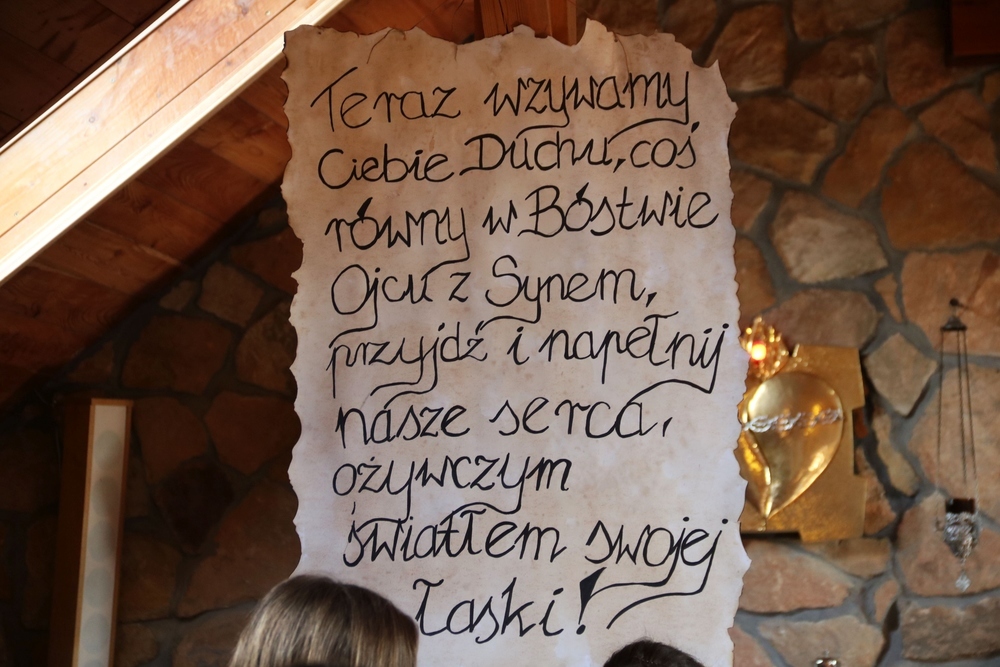 Teraz wzywamy
Ciebie Duchu, coś
równy w Bóstwie
Ojcu z Synem,
przyjdź i napełnij
nasze serca,
ożywczym
światłem swojej
łaski!